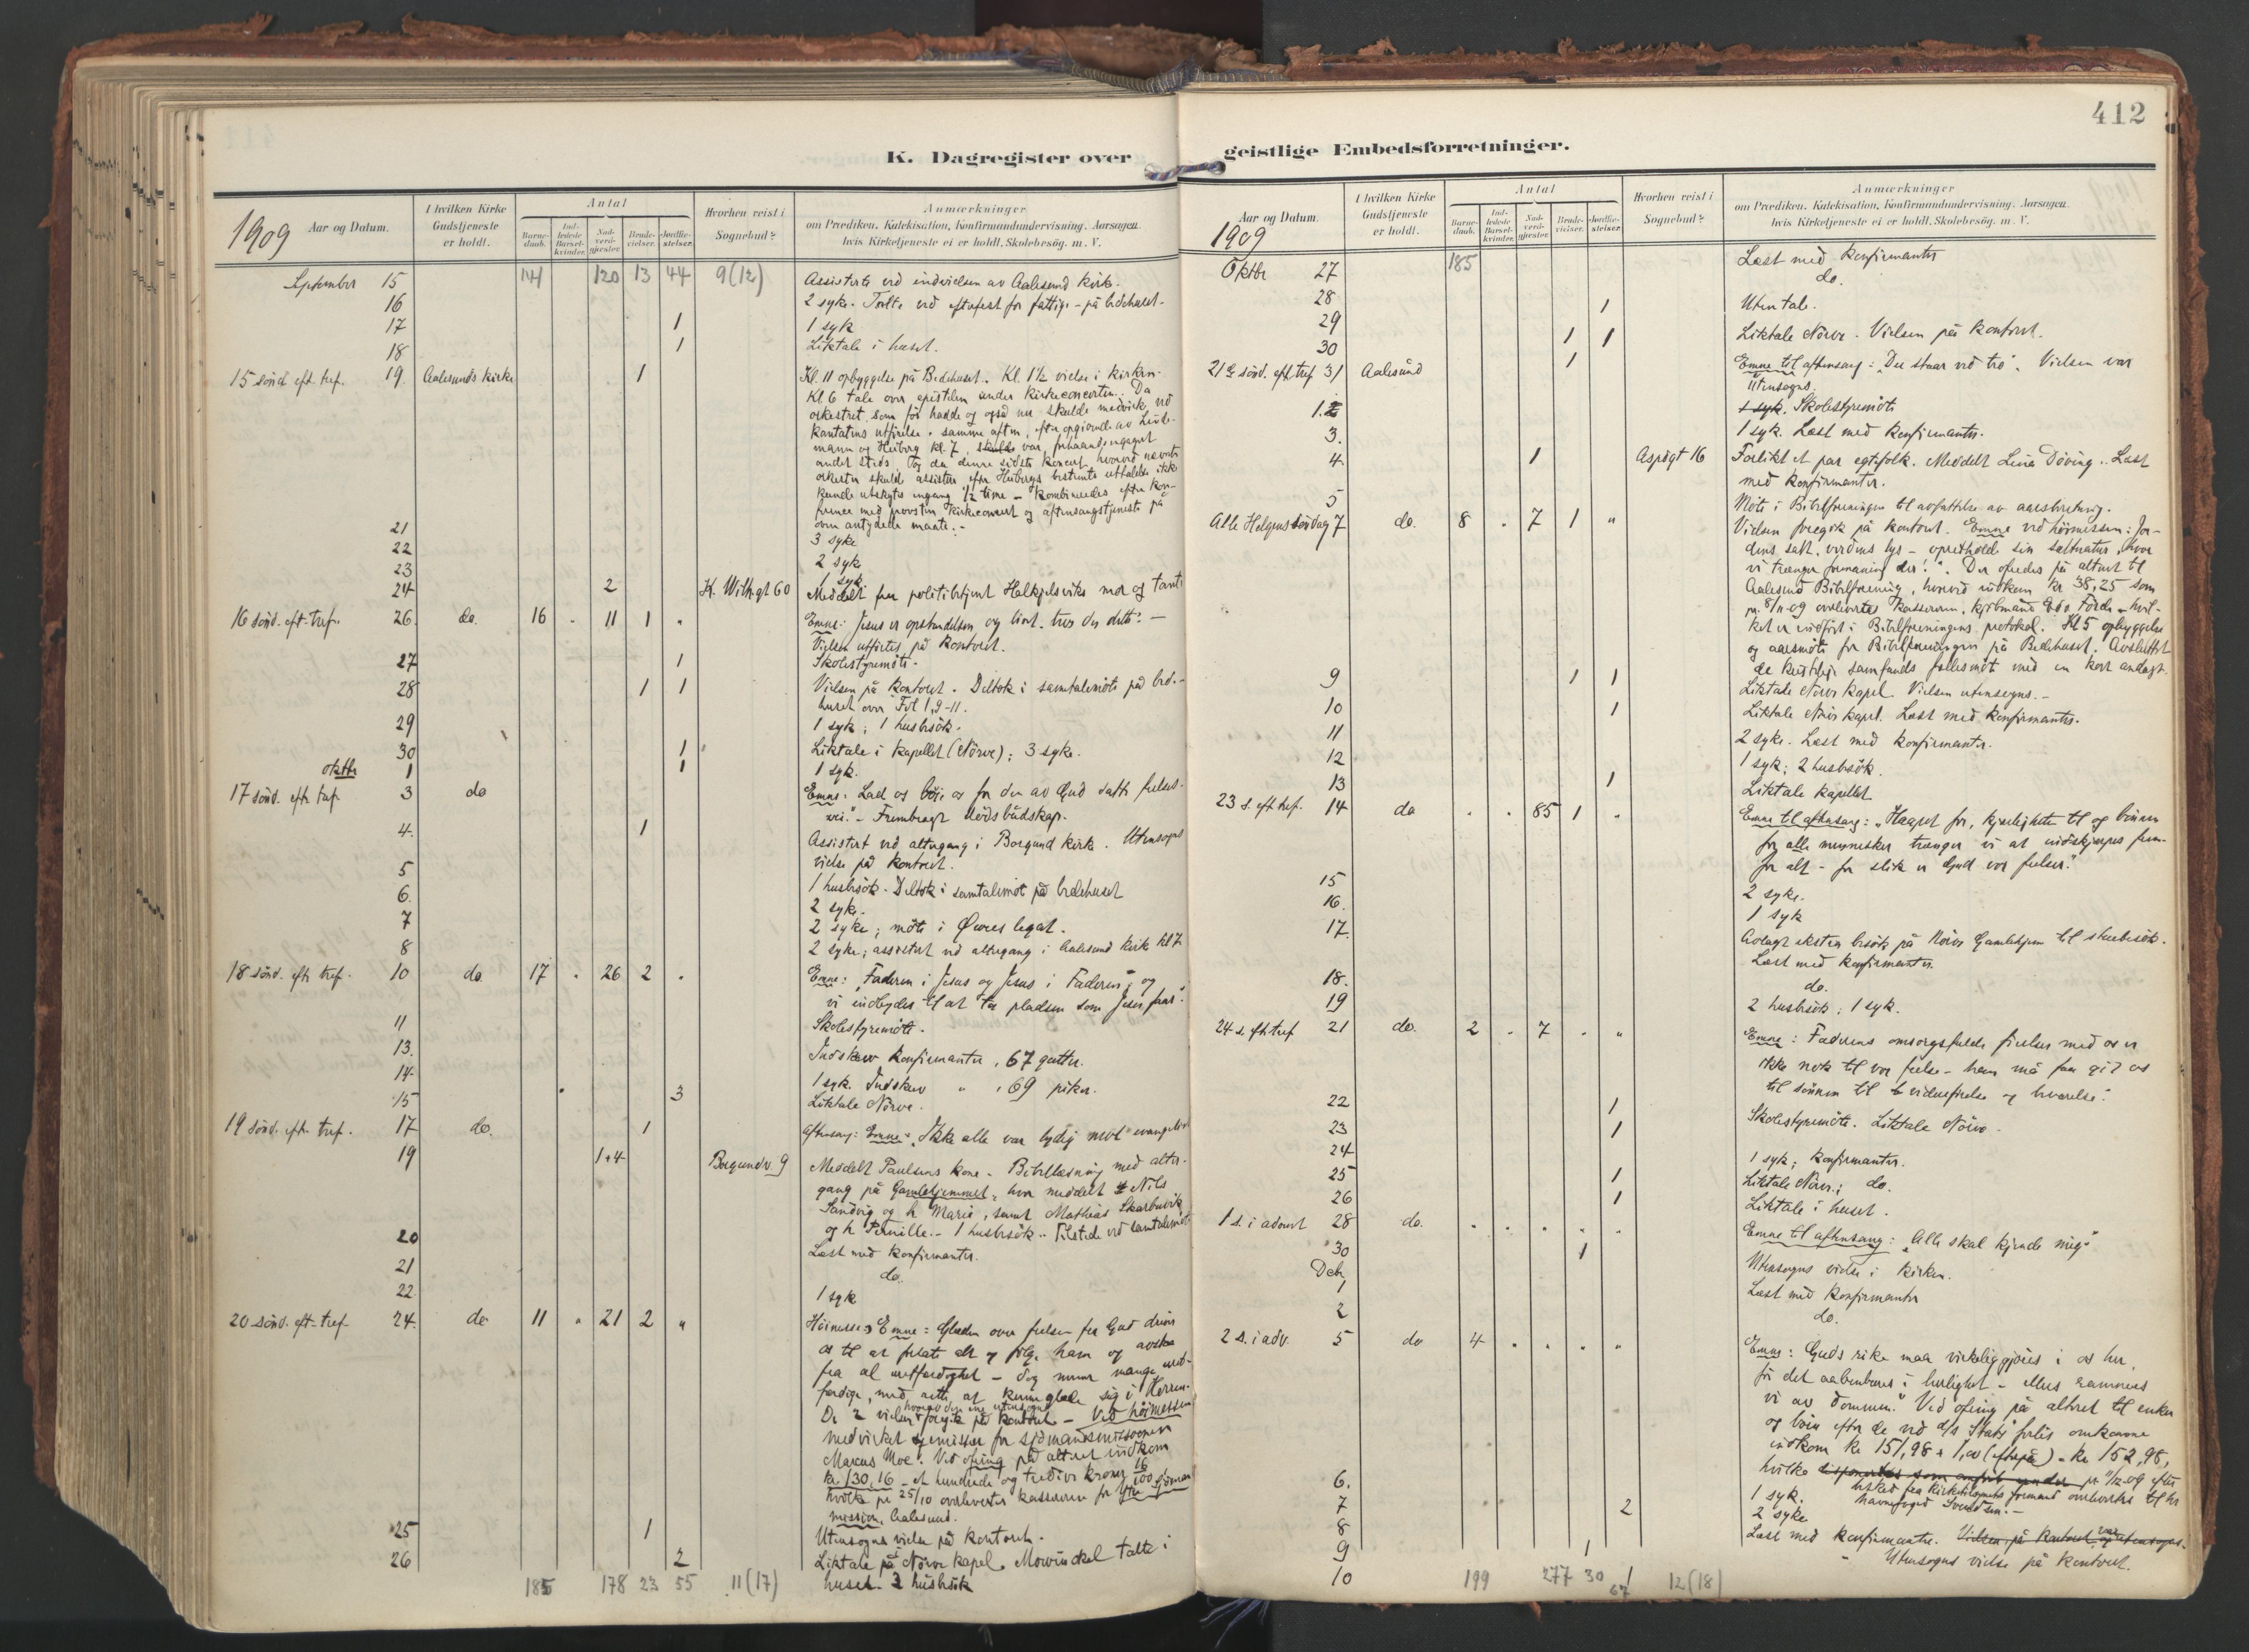 412
K. Dagregister over
geistlige Embedsforretninger.
1909
Aar og Datum.
I hvilken Kirke Gudstjeneste er holdt.
Antal
Barne-daab.
Ind-ledede Barsel-kvinder.
Nad-verd-gjester.
Brude-vielser.
Jordfæ-stelser.
Hvorhen reist i Sognebud?
Anmærkninger
om Prædiken, Katekisation, Konfirmandundervisning. Aarsagen
hvis Kirketjeneste ei er holdt. Skolebesøg. m. V.
September 15 141 120 13 44 9(12) Assisterte ved indvielsen av Aalesund kirke.
16 2 syke. Talte ved aftenfest for fattige - på bedehuset.
17 1 1 syk
18 1 Liktale i huset.
15 sönd. eft. tref. 19. Aalesunds kirke 1 Kl. 11 opbyggelse på Bedehuset. Kl. 1½ vielse i kirken.
Kl 6 tale over epistelen under kirkeconcerten. Da
orkestret som för hadde og også nu skulde medvirke ved
kantatens utførelse samme aften, efter
mann og Heiberg kl. 7,
kunde utskytes engang ½ time - kombineredes efter kon-
ference med provsten kirkeconcert og aftensangstjeneste på
oven antydede maate.
21 3 syke
22 2 syk
23 1 syk
24 2 K. Wilh.gt 60 Meddelt fru politibetjent Helkjelsviks mor og tante
16 sönd. eft. tref. 26. do. 16 . 11 1 „ Emne: Jesus er opstandelsen og livet. tror du dette? -
Vielsen utförtes på kontoret.
27 1 Skolestyremöte.
28 1 1 Vielsen på kontoret. Deltok i samtalemöte på bede-
huset over Fil 1,9-11.
29 1 syk; 1 husbesök.
30 1 Liktale i kapellet (Nörve); 3 syke.
oktbr 1 1 1 syk.
17 sönd. eft. tref. 3 do Emne: Lad os böie os for den av Gud satte frelses-
vei." - Frembragt dödsbudskap.
4. 1 Assistert ved altergang i Borgund kirke. Utensogns
vielse på kontoret.
5 1 husbesök. Deltok i samtalemöt på bedehuset
6. 2 syke.
7 2 syke; möte i Qvares legat.
8 2 syke; assistert ved altergang i Aalesund kirke kl 7
18 sönd. eft. tref. 10 do 17 . 26 2 . Emne: „Faderen i Jesus og Jesus i Faderen", og
vi indbydes til at ta pladsen som Jesus faar."
11 Skolestyremöte.
13. Indskrev konfirmanter, 67 gutter.
14 1 syk. Indskrev „ , 69 piker.
15 3 Liktale Nörve.
19 sönd. eft. tref. 17 do. 1 Aftensang: Emne: „Ikke alle var lydig mot evangeliet
19 1+4 Borgundv. 9 Meddelt Paulsens kone. Bibellæsning med alter-
gang på Gamlehjemmet, hvor meddelt Nils
Sandvig og h. Marie, samt Mathias Skarbøvik
og h Pernille. - 1 husbesök. Tilstede ved samtalemöte
20 Læst med konfirmanter.
21 do.
22 1 syk
20 sönd. eft. tref. 24. do 11 „ 21 2 „ Höimesse: Emne: Glæden over frelsen fra Gud driver
os til at forlate alt og följe ham og avstaa
fra al uretfærdighet - dog mener mange uret-
færdige, med rette at kunne glæde sig i Herren.
De 2 vielser (hvorav den ene utensogns) foregik på kontoret - Ved höimessen
medvirket emissær for sjömandsmissionen
Marcus Moe. Ved ofring på alteret indkom
kr 130,16 - et hundrede og tredive kroner 16/100
hvilke pr 25/10 overleveres kassereren for Ytre Sjömans
mission, Aalesund.
25 1 Utensogns vielse på kontoret.
26 2 Liktale på Nörve kapel. Mowinckel talte i
huset. 2 husbesök
185 178 23 55 11(17)
1909
Aar og Datum.
I hvilken Kirke Gudstjeneste er holdt.
Antal
Barne-daab.
Ind-ledede Barsel-kvinder.
Nad-verd-gjester.
Brude-vielser.
Jordfæ-stelser.
Hvorhen reist i Sognebud?
Anmærkninger
om Prædiken, Katekisation, Konfirmandundervisning. Aarsagen
hvis Kirketjeneste ei er holdt. Skolebesøg. m. V.
Oktbr 27 185 Læst med konfirmanter
28 do.
29 1 Uten tale.
30 1 1 Liktale Nörve. Vielsen på kontoret.
21de sönd. eft. tref 31 Aalesund 1 Emne til aftensang: „Du staar ved tro". Vielsen var
utensogns.
1. Skolestyremöte
3. 1 syk. Læst med konfirmanter.
4. 1 Aspögt 16 Forlikt et par egtefolk. Meddelt Lina Döving. Læst
med konfirmanter.
5 Möte i Bibelforeningen til avfattelse av aarsberetning.
Alle Helgens söndag 7 do. 8 . 7 1 „ Vielsen foregik på kontoret. Emne ved höimessen: Jor-
dens salt, verdens lys - opretholde sin saltnatur, hvor
vi trænger formaning der!". Der ofredes på alteret til
Aalesund Bibelforening, hvorved indkom kr 38,25 som
pr. 8/11-09 overlevertes kassereren, kjöbmand Edv. Förde - hvil-
ket er indfört i Bibelforeningens protokol. Kl 5 opbyggelse
og aarsmöte for Bibelforeningen på Bedehuset. Avsluttet
de kristelige samfunds fællesmöt med en kort andagt.
9 1 1 Liktale Nörve kapel. Vielsen utensogns.
10 1 Liktale Nörve kapel. Læst med konfirmanter.
11 2 syke. Læst med konfirmanter.
12 1 syk; 2 husbesök.
13 1 Liktale kapellet
23 s. eft tref. 14 do . . 85 1 „ Emne til aftensang: „Haapet for, kjærligheten til og bönnen
for alle mennesker trænger vi at indskjærpes frem-
for alt - for slik er Gud vor frelser."
15 2 syke.
16. 1 syk
17. Avlagt ekstra besök på Nörve Gamlehjem til
Læst med konfirmanter.
18. do.
19 2 husbesök; 1 syk.
24 s. eft tref 21 do. 2 . 7 . „ Emne: Faderens omsorgsfulde förelser med os er
ikke nok til vor frelse - han må faa gi os
til sönnen til videreförelse og bevarelse."
22 1 Skolestyremöte. Liktale Nörve.
23 1
24 1 syk; konfirmanter.
25 1 Liktale Nörve; do.
26 1 Liktale i huset.
1 s. i advent 28 do. . . . . . Emne til aftensang: „Alle skal kjende mig"
30 1 Utensogns vielse i kirken.
Debr
1 Læst med konfirmanter
2 do.
2 s. i adv. 5 do 4 . . . „ Emne: Guds rike maa virkeliggjöres i os her,
för det aabenbares i herlighet - ellers rammes
vi av dommen." Ved ofring på alteret til enker
og börn efter de ved d/s Stats forlis omkomne
indkom kr 151,98 + 1,00 (efterpå) = kr 152,98,
hvilke disponertes som pr 11/12-09 efter
6. 1 syk.
7 2 2 syke
8 Læst med konfirmanter. Vielsen på kontoret var utensogns.
9 1 Utensogns vielse på kontoret.
10 199 277 30 67 12(18)